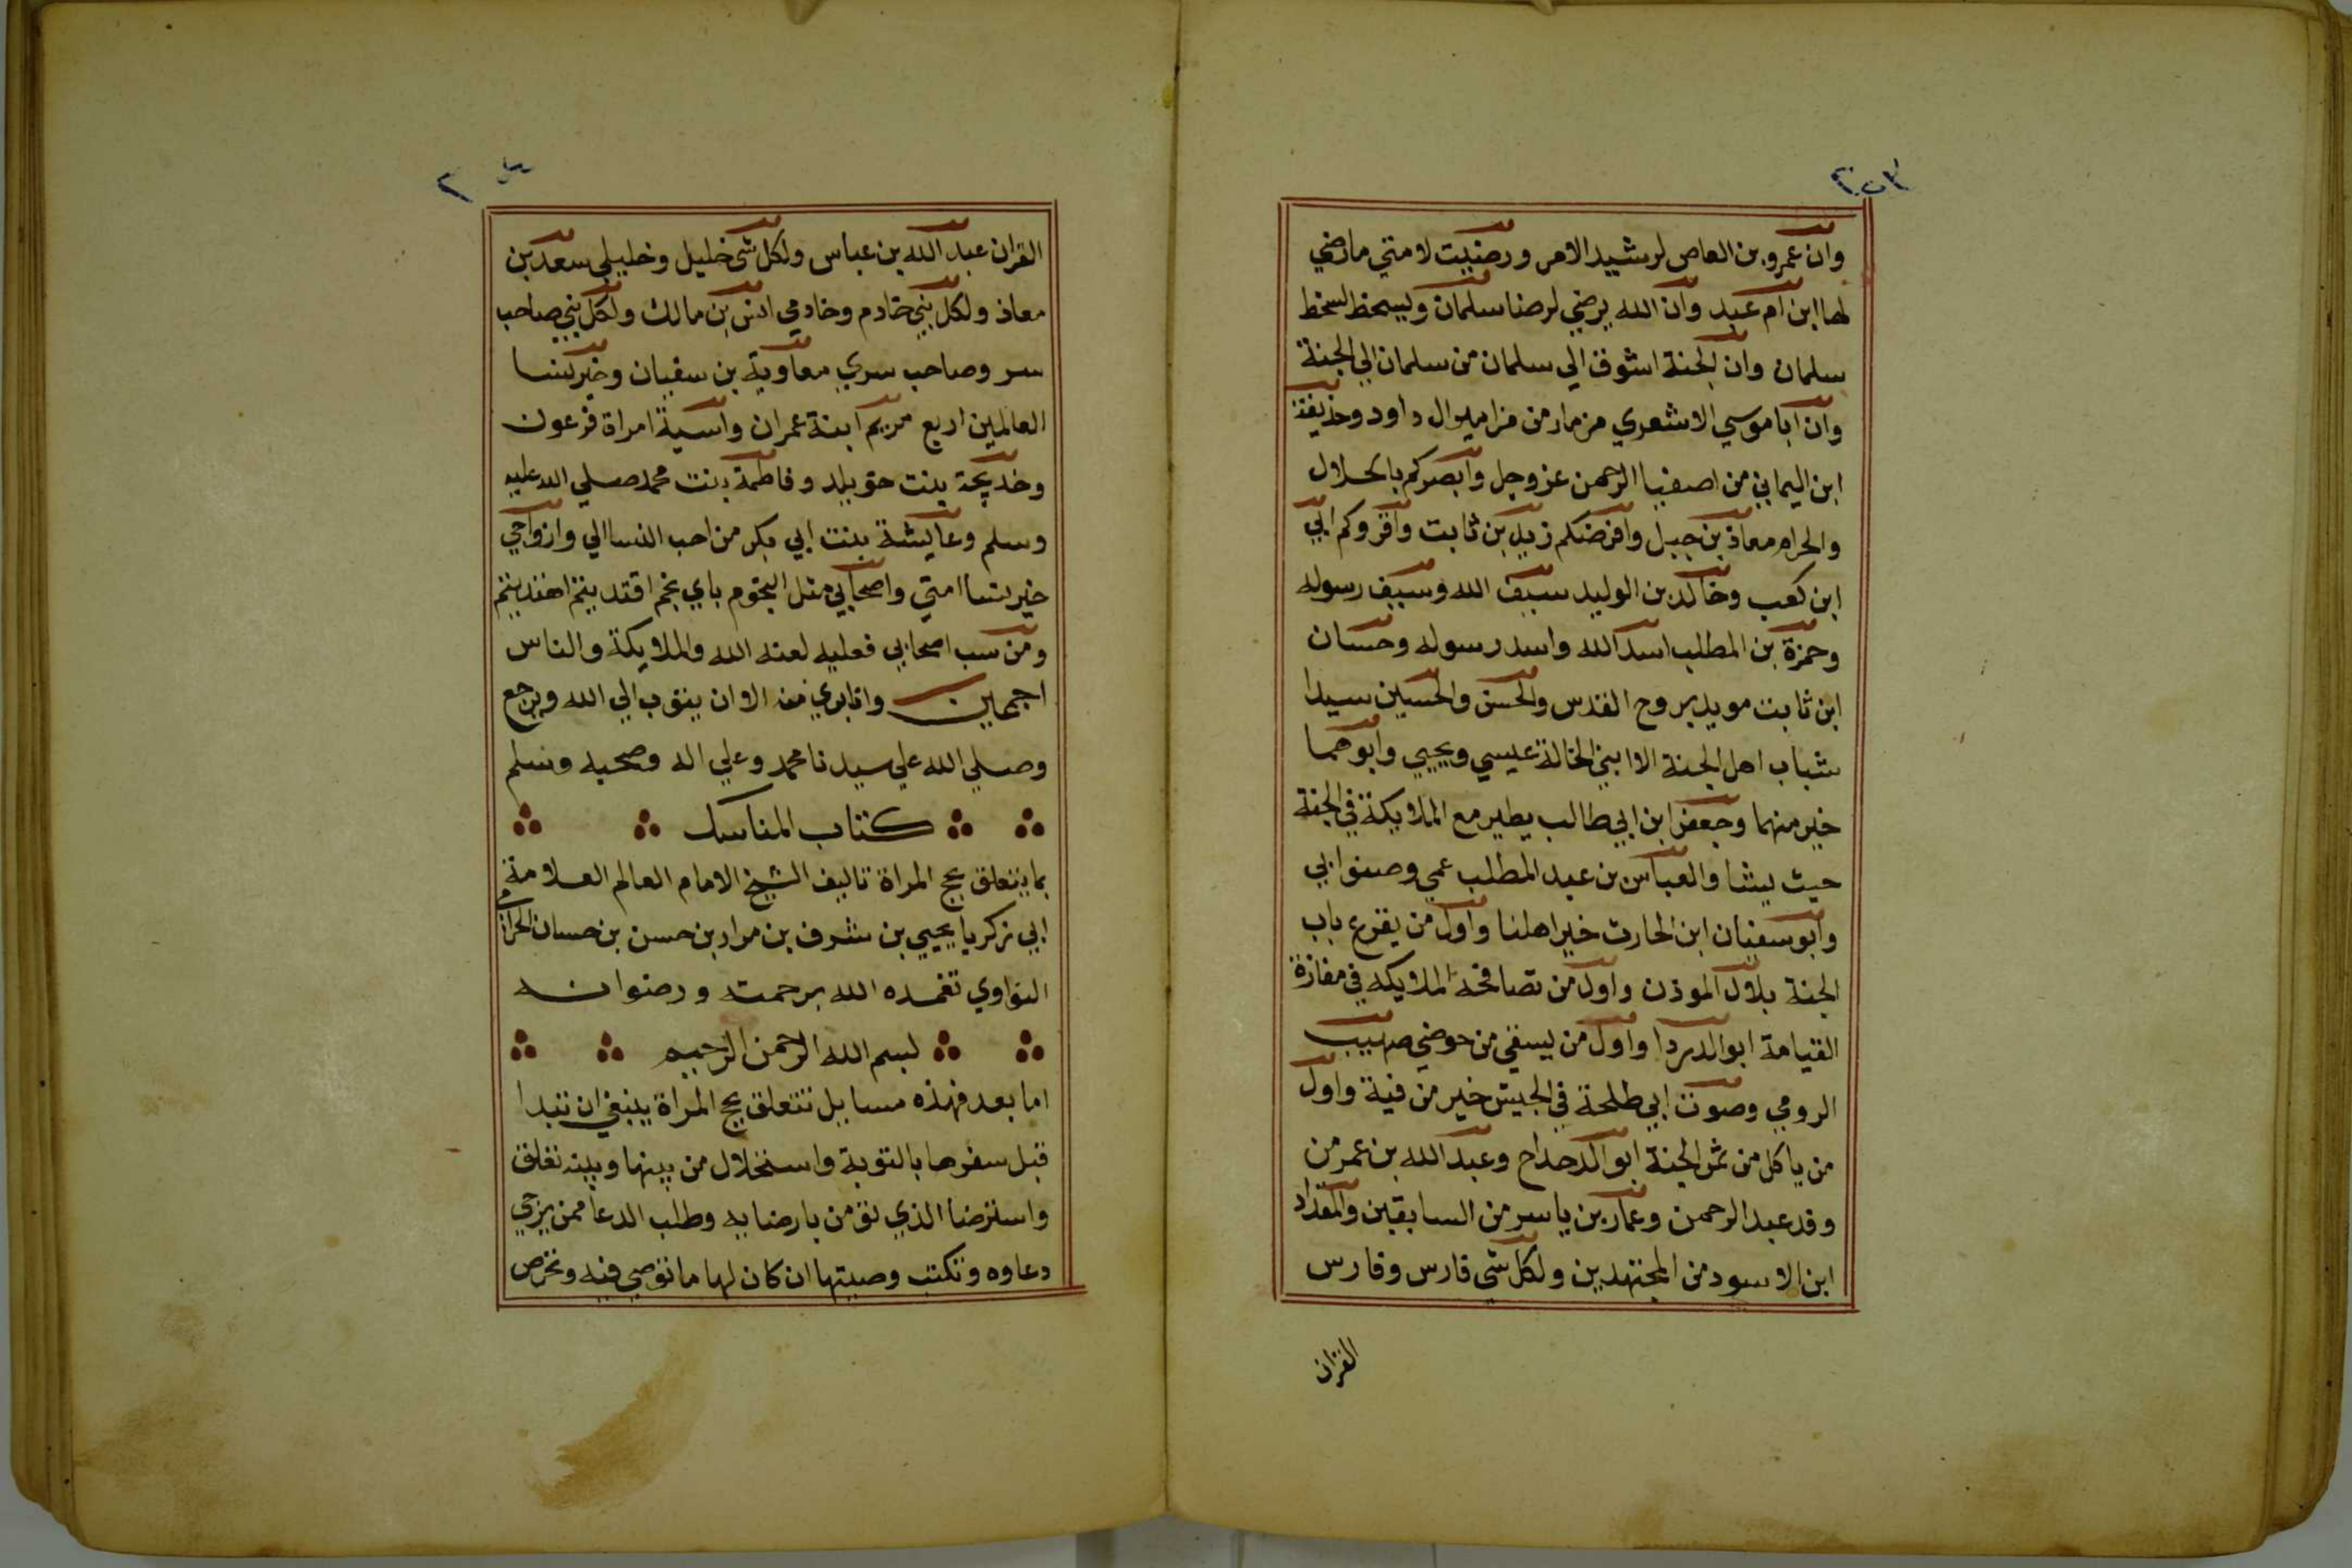 وان عمرو بن العاص لرشيد الامر ورضيت لامتي ما رضي
لها ابن ام عبد وان الله يرضي لرضا سلمان ويسخط لسخط
سلمان وان الجنة اشوق الي سلمان من سلمان الي الجنة
وان ابا موسي الاشعري مزمار من مزامير ال داود وحذيفة
ابن اليماني من اصفيا الرحمن عز وجل وابصركم بالحلال
والحرام معاذ بن جبل وافرضكم زيد بن ثابت واقروكم ابي
ابن كعب وخالد بن الوليد سيف الله وسيف رسوله
وحمزة بن المطلب اسد الله واسد رسوله وحسان
ابن ثابت مويد بروح القدس والحسن والحسين سيدا
شباب اهل الجنة الا ابني الخالة عيسي ويحيي وابوهما
خير منهما وجعفر ابن ابي طالب يطير مع الملايكة في الجنة
حيث يشا والعباس بن عبد المطلب عمي وصنوا بي
وابو سفيان ابن الحارث خير اهلنا واول من يقرع باب
الجنة بلال الموذن واول من تصافحه الملايكه في مفازة
القيامة ابو الدردا واول من يسقي من حوضي صهيب
الرومي وصوت ابي طلحة في الجيش خير من فية واول
من ياكل من ثمر الجنة ابو الدحداح وعبد الله بن عمر من
وفد عبد الرحمن وعمار بن ياسر من السابقين والمقداد
ابن الاسود من المجتهدين ولكل شي فارس وفارس
القران
القران عبد الله بن عباس ولكل شي خليل وخليلي سعد بن
معاذ ولكل نبي خادم وخادمي انس بن مالك ولكل نبي صاحب
سر وصاحب سري معاوية بن سفيان وخير نسا
العالمين اربع مريم ابنة عمران واسية امراة فرعون
وخديجة بنت خويلد وفاطمة بنت محمد صلي الله عليه
وسلم وعايشة بنت ابي بكر من احب النسا الي وازواجي
خير نسا امتي واصحابي مثل النجوم باي نجم اقتديتم اهتديتم
ومن سب اصحابي فعليه لعنه الله والملايكة والناس
اجمعين وانا بري منه الا ان يتوب الي الله ويرجع
وصلي الله علي سيدنا محمد وعلي اله وصحبه وسلم
كتاب المناسك
بما يتعلق بحج المراة تاليف الشيخ الامام العالم العلامة
ابي زكريا يحيي بن شرف بن مراد بن حسن بن حسان الحزامي
النواوي تغمده الله برحمته ورضوانه
بسم الله الرحمن الرحيم
اما بعد فهذه مسايل تتعلق بحج المراة ينبغي ان تبدا
قبل سفرها بالتوبة واستحلال من بينها وبينه تعلق
واسترضا الذي تومن بارضايه وطلب الدعا ممن يرجي
دعاوه وتكتب وصيتها ان كان لها ما توصي فيه وتحرص